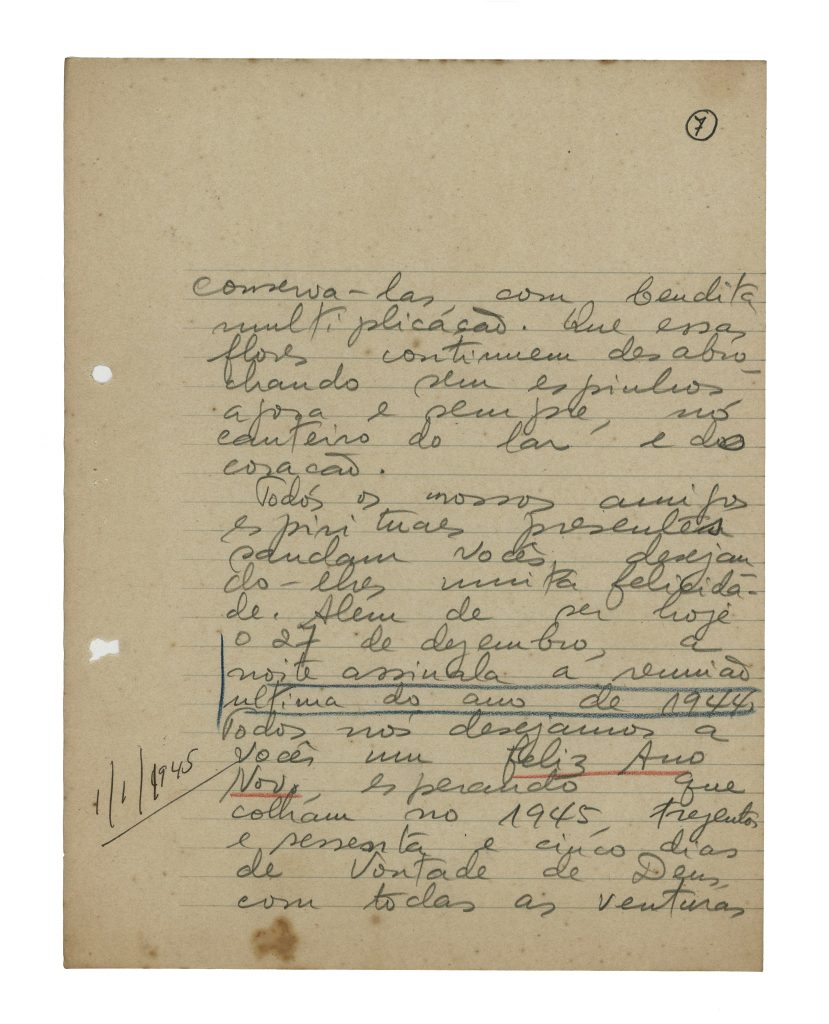 7
conserva-las, com bendita
multiplicáçaõ. Que essas
flores continuem desabro-
chando sem espinhos
agora e sempre, no
canteiro do lar e do
coraçaõ.
Todos os nossos amigos
espirituaes presentes
saudam vocês, desejan
do-lhes muita felicida-
de. Além de ser hoje
o 27 de dezembro, a
noite assinala a reunião
ultima do ano de 1944.
Todos nós desejamos a
vocês um feliz Ano
Novo, esperando que
colham no 1945, trezentos
e sessenta e cinco dias
de Vontade de Deus,
com todas as venturas
1/1/1945